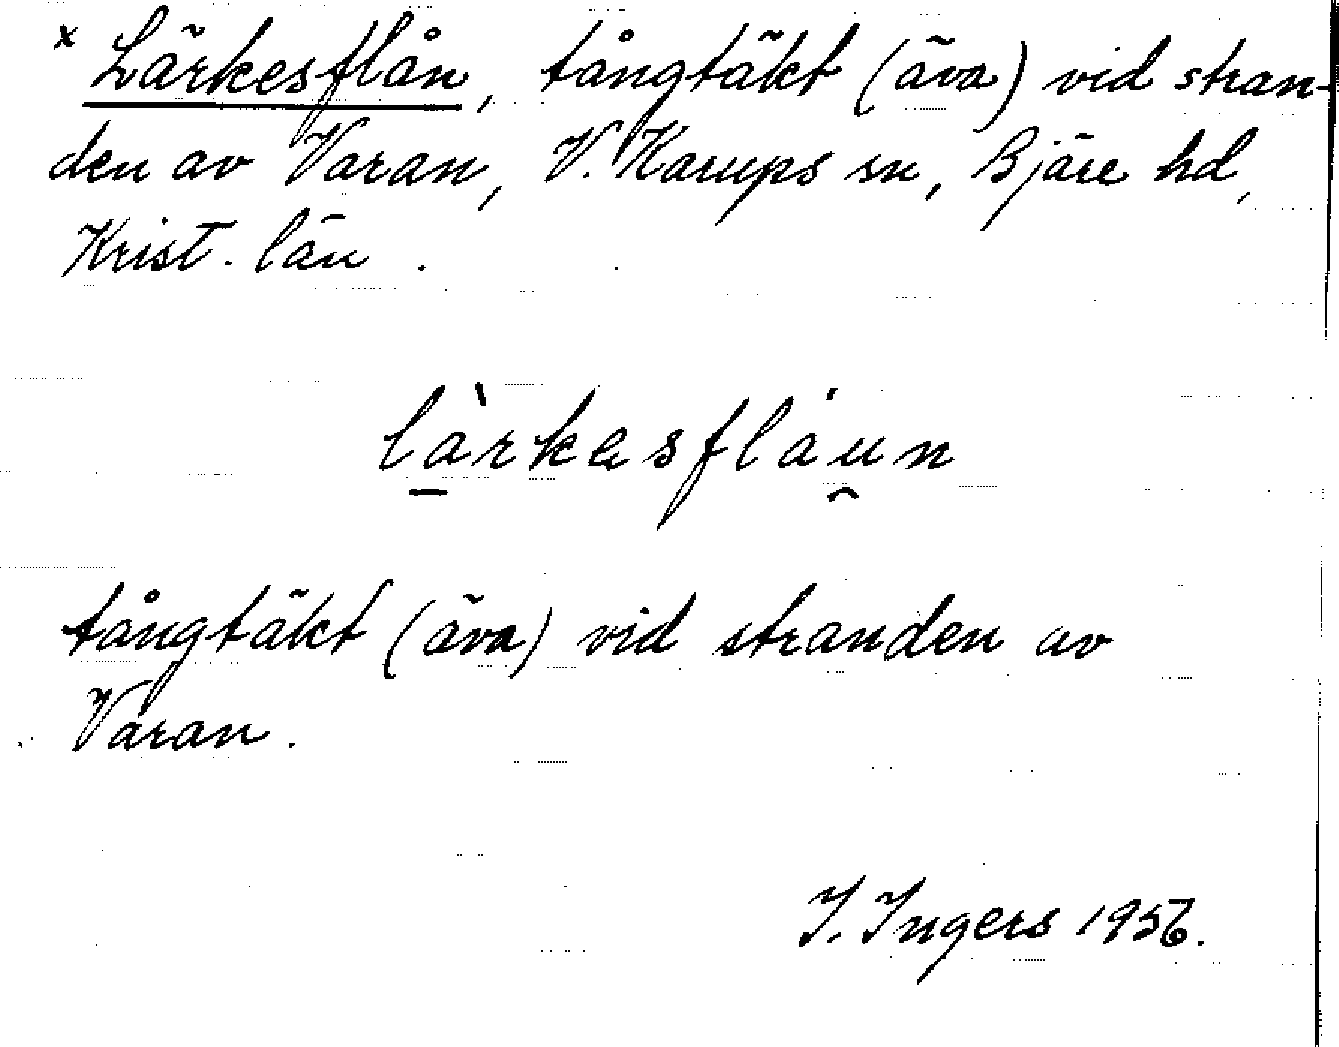 x Lärkesflån, tångtäkt (äva) vid stran-
den av Varan, V. Karups sn, Bjäre hd,
Krist. län.
làrkesfláun
tångtäkt (äva) vid stranden av
Varan.
I. Ingers 1956.